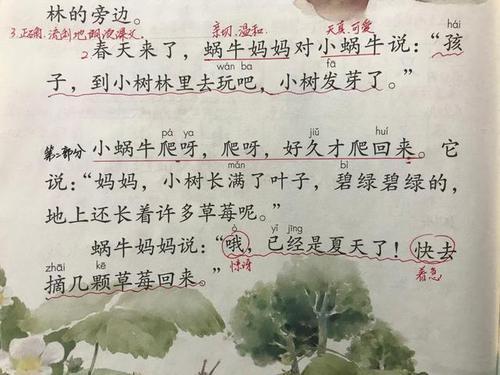 林的旁边。
3.正确、流利地朗读课文。 亲切、温和 天真、可爱 hái
2春天来了，蜗牛妈妈对小蜗牛说：“孩
wán ba fā
子，到小树林里去玩吧，小树发芽了。”
pá ya jiǔ huí
第二部分 小蜗牛爬呀，爬呀，好久才爬回来。它
mǎn bì
说：“妈妈，小树长满了叶子，碧绿碧绿的，
地上还长着许多草莓呢。”
ò yǐ jīng
蜗牛妈妈说：“哦，已经是夏天了！快去
zhāi kē 惊讶 着急
摘几颗草莓回来。”